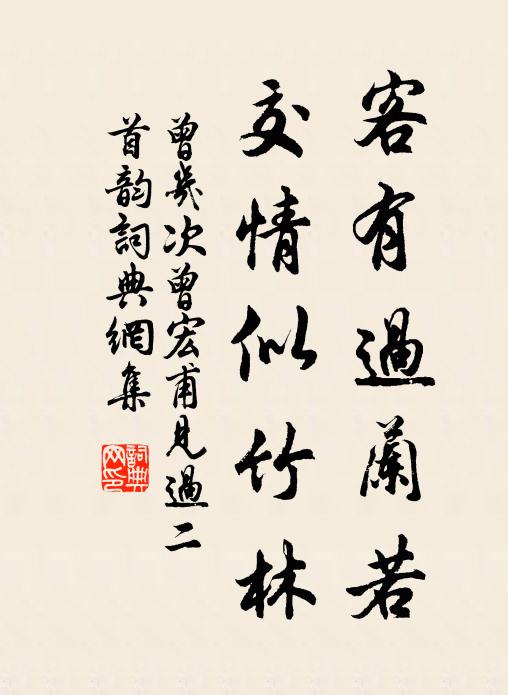 客有過蘭若
交情似竹林
曾幾次曾宏甫見過二
首韵詞典網集
詞典
网印